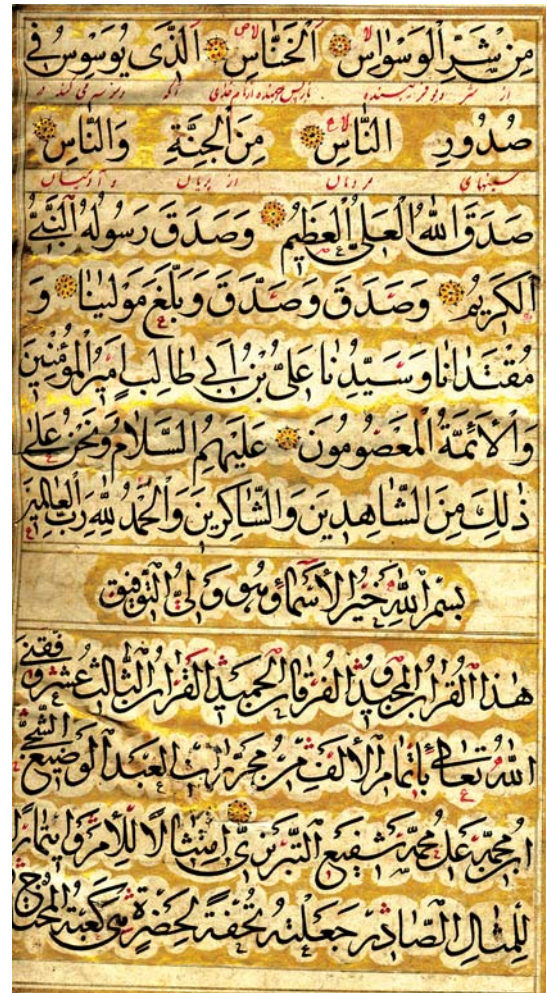 مِن شَرِّ الْوَسْوَاسِ الْخَنَّاسِ الَّذِي يُوَسْوِسُ فِي
از شر دیو فریبنده
صُدُورِ النَّاسِ مِنَ الْجِنَّةِ وَالنَّاسِ
سینهای مردمان از پریان و آدمیان
صَدَقَ اللهُ الْعَلِيُّ الْعَظِيمُ وَصَدَقَ رَسُولُهُ النَّبِيُّ
الْكَرِيمُ وَصَدَقَ وَصَدَّقَ وَبَلَّغَ مَوْلَينَا وَ
مُقْتَدَانَا وَسَيِّدُنَا عَلِيُّ بْنُ أَبِي طَالِبٍ أَمِيرُ الْمُؤْمِنِينَ
وَالْأَئِمَّةُ الْمَعْصُومُونَ عَلَيْهِمُ السَّلَامُ وَنَحْنُ عَلَى
ذَٰلِكَ مِنَ الشَّاهِدِينَ وَالشَّاكِرِينَ وَالْحَمْدُ لِلَّهِ رَبِّ الْعَالَمِينَ
بِسْمِ اللهِ خَيْرِ الْأَسْمَاءِ وَهُوَ وَلِيُّ التَّوْفِيقِ
هٰذَا الْقُرْآنُ الْمَجِيدُ وَالْفُرْقَانُ الْحَمِيدُ الْقُرْآنُ الثَّالِثُ عَشَرَ وَفَّقَنِي
اللهُ تَعَالَى بِإِتْمَامِ الْأَلْفِ مِن مُجَرَّد الْعَبْدُ الْوَضِيعُ
ابْنُ مُحَمَّد عَلِي مُحَمَّد شَفِيع التَّبْرِيزِيّ امْتِثَالًا لِلْأَمْرِ وَ
لِلْمِثَالِ الصَّادِرِ جَعَلْتُهُ تُحْفَةً لِحَضْرَةِ هِيَ كَعْبَةُ الْمُحْتَاجِ